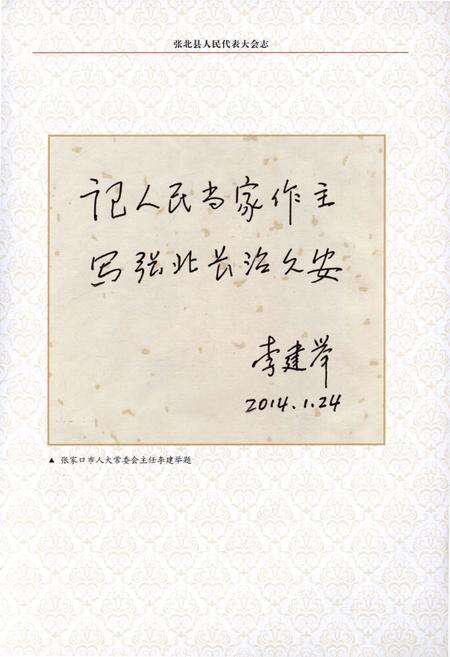 张北县人民代表大会志
记人民当家作主
写张北长治久安
李建举
2014.1.24
▲ 张家口市人大常委会主任李建举题